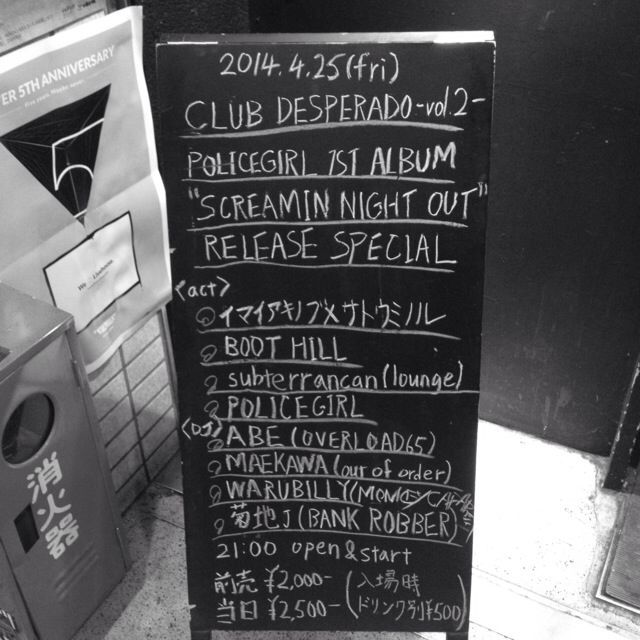 ER 5TH ANNIVERSARY
5
2014.4.25(fri)
CLUB DESPERADO-vol.2-
POLICEGIRL 1ST ALBUM
"SCREAMIN NIGHT OUT"
RELEASE SPECIAL
<act>
イマイアキノブ×サトウミノル
BOOT HILL
subterrancan(lounge)
POLICEGIRL
<DJ>
ABE(OVERLOAD65)
MAEKAWA(out of order)
WARUBILLY
菊地J(BANK ROBBER)
21:00 open&start
前売 ¥2,000-
当日 ¥2,500-
(入場時
ドリンク別¥500)
消火器